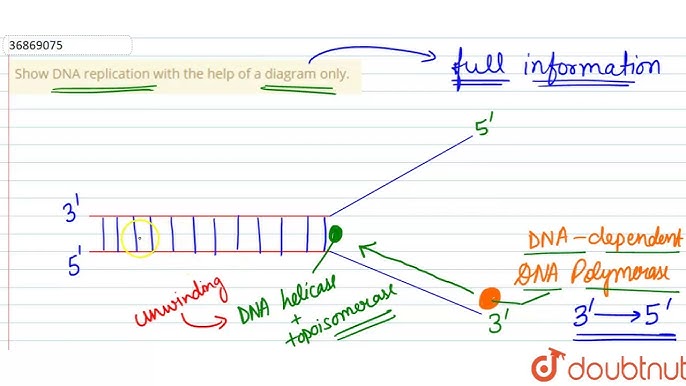 36869075
Show DNA replication with the help of a diagram only.
full information
5'
3'
5'
DNA-dependent
DNA Polymerase
unwinding
DNA helicase
+
topoisomerase
3'
3' → 5'
doubtnut